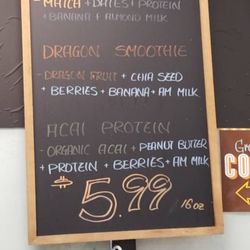 - MATCHA + DATES + PROTEIN
+ BANANA + ALMOND MILK
DRAGON SMOOTHIE
- DRAGON FRUIT + CHIA SEED
+ BERRIES + BANANA + AM MILK
ACAI PROTEIN
- ORGANIC ACAI + PEANUT BUTTER
+ PROTEIN + BERRIES + AM MILK
$5.99 16 oz